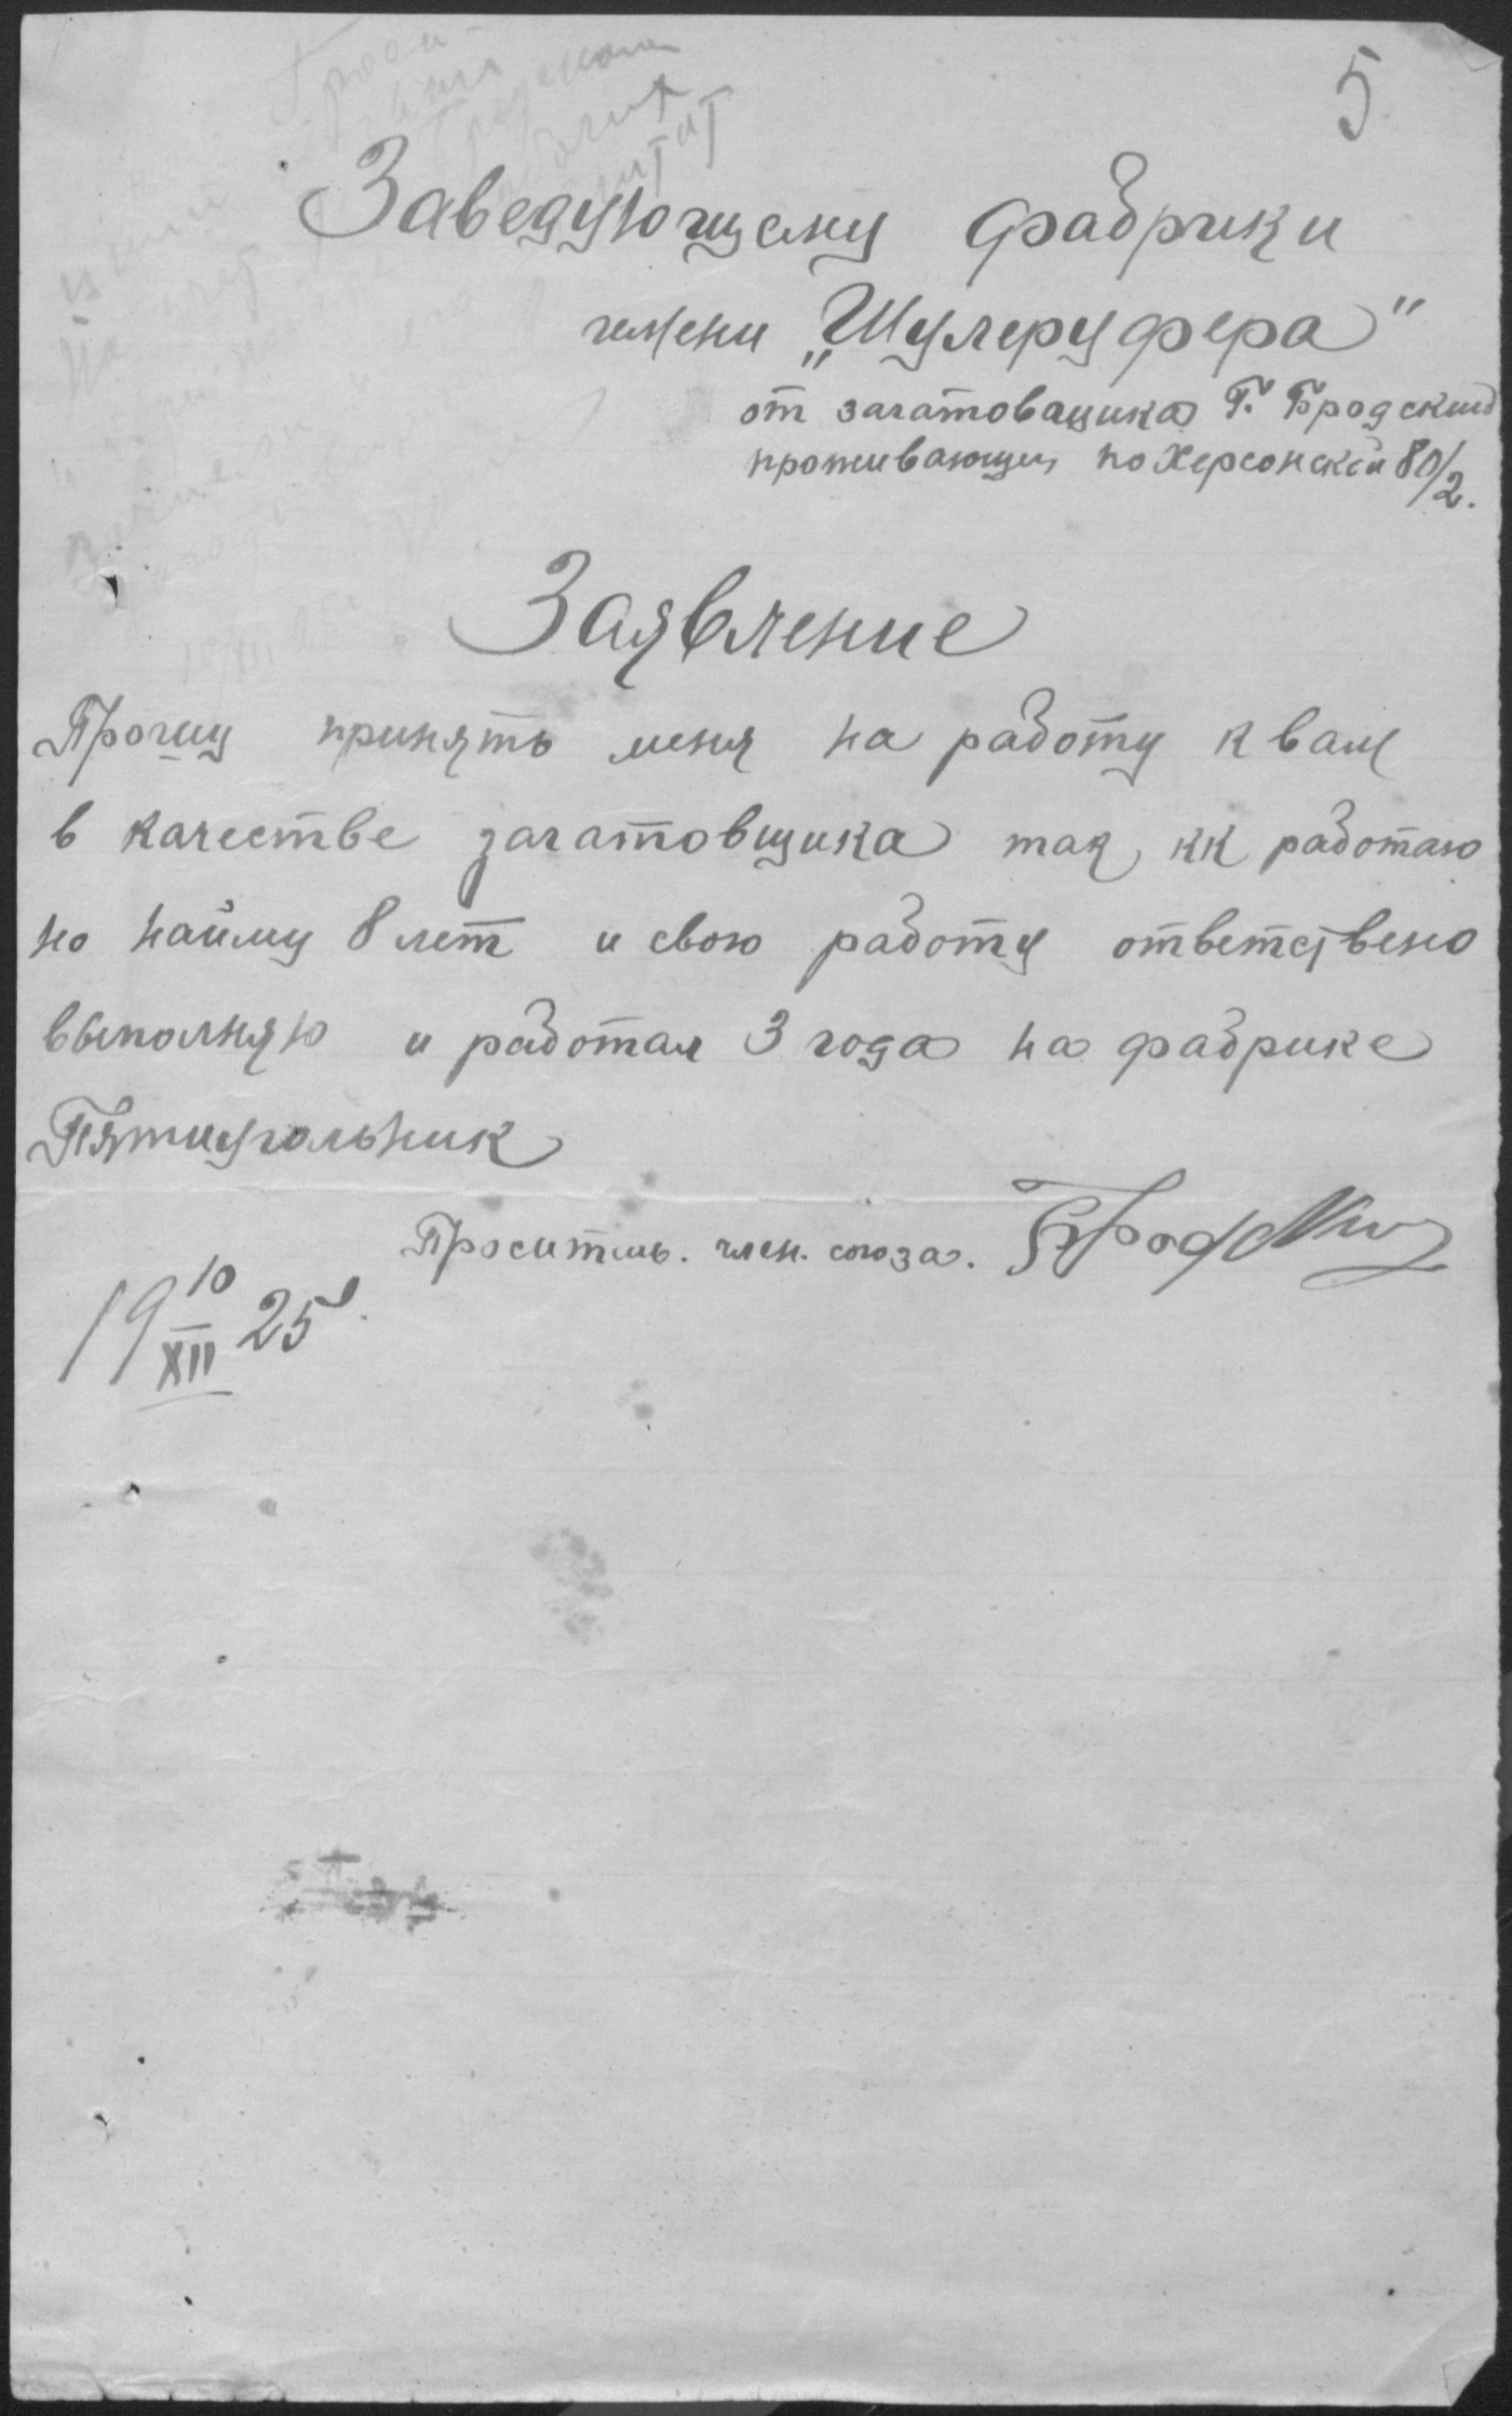 5
Заведующему фабрики
имени „Шулеруфера"
от загатовщика Г. Бродский
проживающий по Херсонской 80/2.
Заявление
Прошу принять меня на работу к вам
в качестве загатовщика так кк работаю
по найму 8 лет и свою работу ответствено
выполняю и работал 3 года на фабрике
Пятиугольник
Проситель. член. союза. Бродский
19 10/XII 25 г.